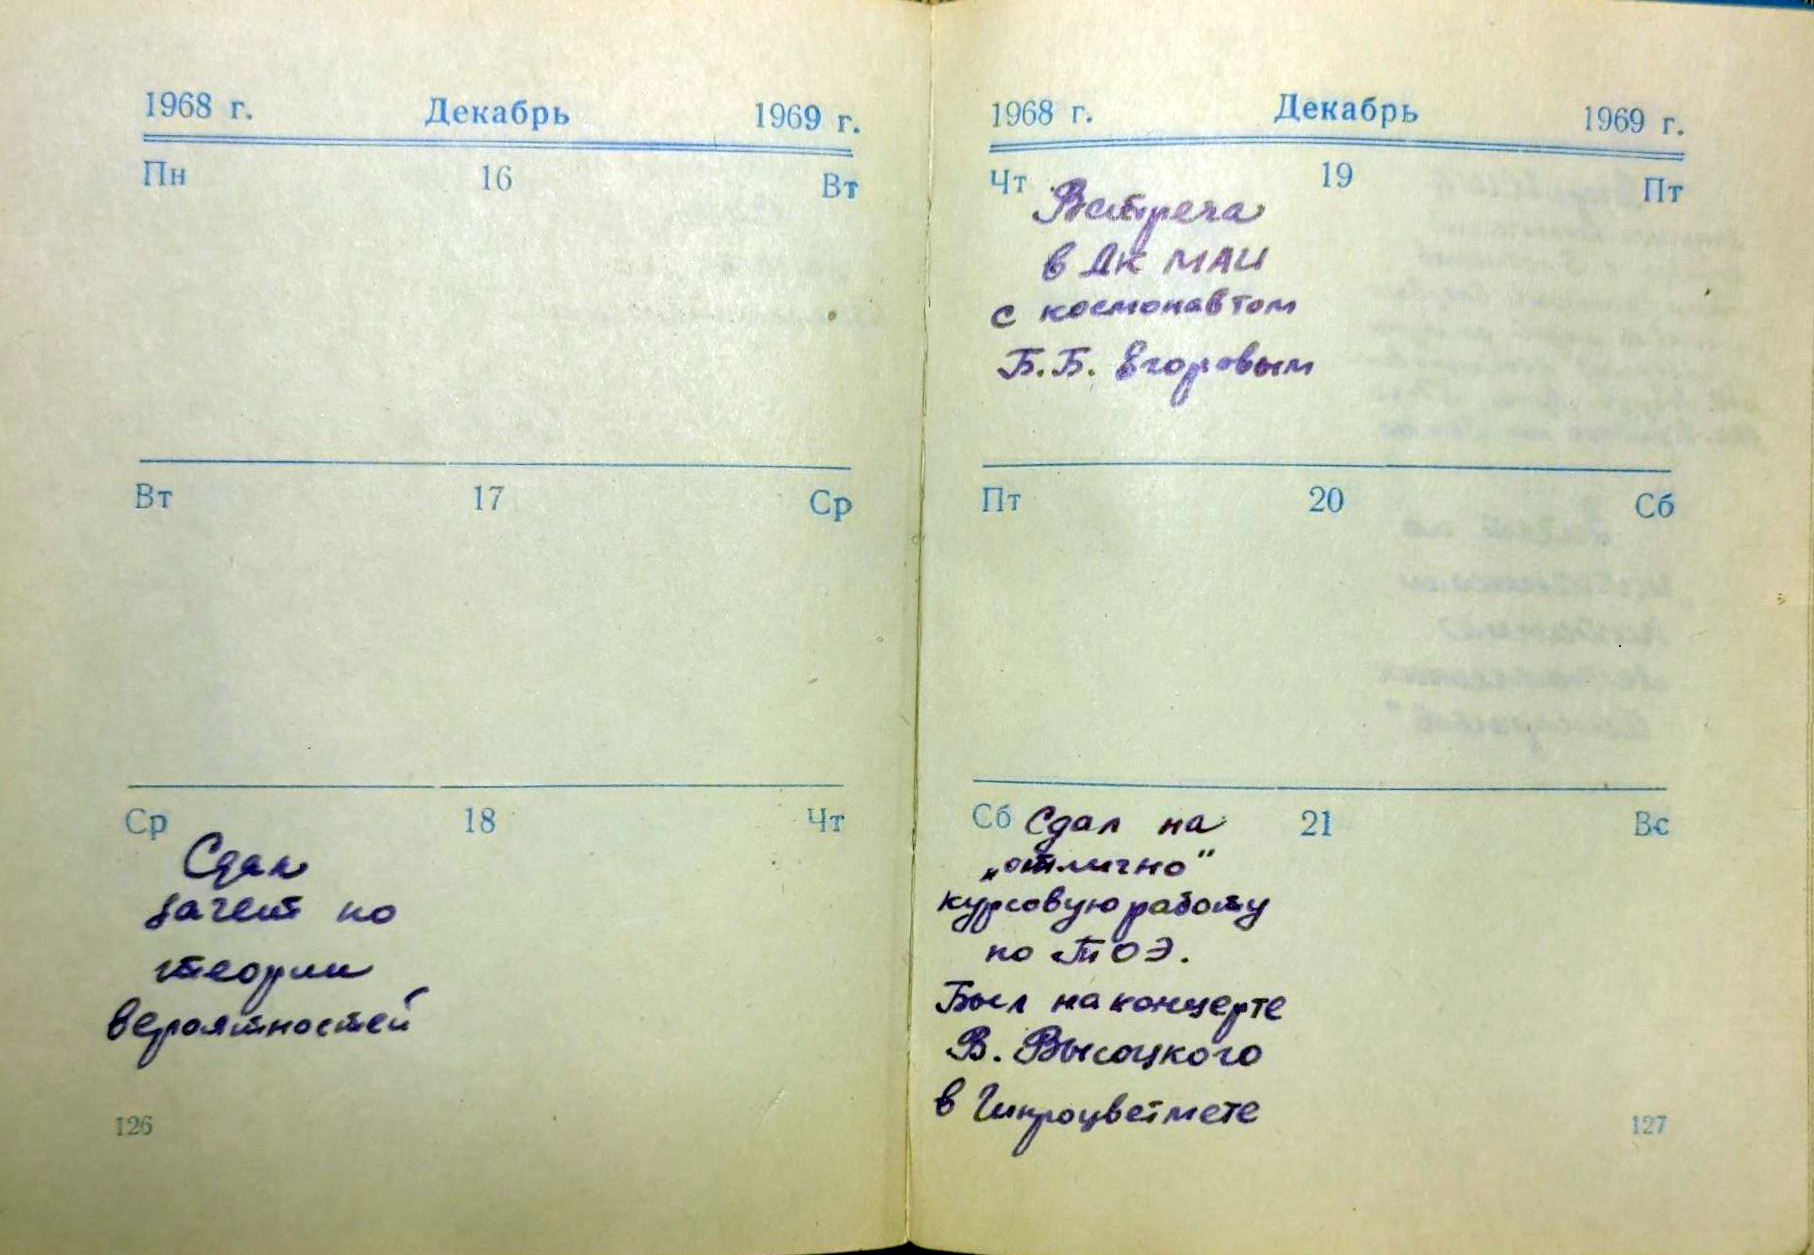 1968 г. Декабрь 1969 г.
Пн 16 Вт
Вт 17 Ср
Ср 18 Чт
Сдал
зачет по
теории
вероятностей
126
1968 г. Декабрь 1969 г.
Чт 19 Пт
Встреча
в ДК МАИ
с космонавтом
Б.Б. Егоровым
Пт 20 Сб
Сб 21 Вс
Сдал на
„отлично"
курсовую работу
по ТОЭ.
Был на концерте
В. Высоцкого
в Гипроцветмете
127